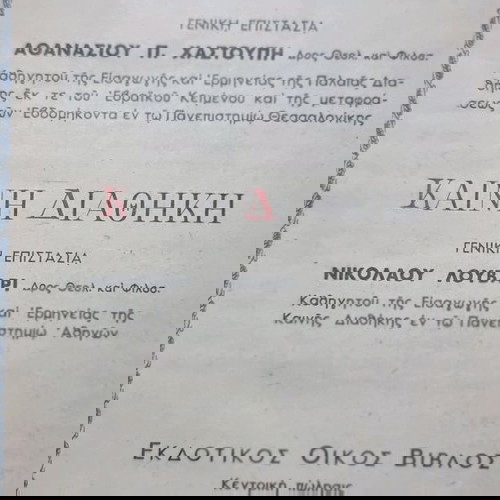 ΓΕΝΙΚΗ ΕΠΙΣΤΑΣΙΑ
ΑΘΑΝΑΣΙΟΥ Π. ΧΑΣΤΟΥΠΗ Δρος Θεολ. καὶ Φιλοσ.
Καθηγητοῦ τῆς Εἰσαγωγῆς καὶ Ἑρμηνείας τῆς Παλαιᾶς Δια-
ἔκ τε τοῦ Ἑβραϊκοῦ Κειμένου καὶ τῆς μεταφρά-
Ἑβδομήκοντα ἐν τῷ Πανεπιστημίῳ Θεσσαλονίκης
ΚΑΙΝΗ ΔΙΑΘΗΚΗ
ΓΕΝΙΚΗ ΕΠΙΣΤΑΣΙΑ
ΝΙΚΟΛΑΟΥ ΛΟΥΒΑΡΙ Δρος Θεολ. καὶ Φιλοσ.
Καθηγητοῦ τῆς Εἰσαγωγῆς
καὶ Ἑρμηνείας τῆς
Καινῆς Διαθήκης ἐν τῷ Πανεπι
στημίῳ Ἀθηνῶν
ΕΚΔΟΤΙΚΟΣ ΟΙΚΟΣ ΒΙΒΛΟΣ
Κεντρικὴ πώλησις